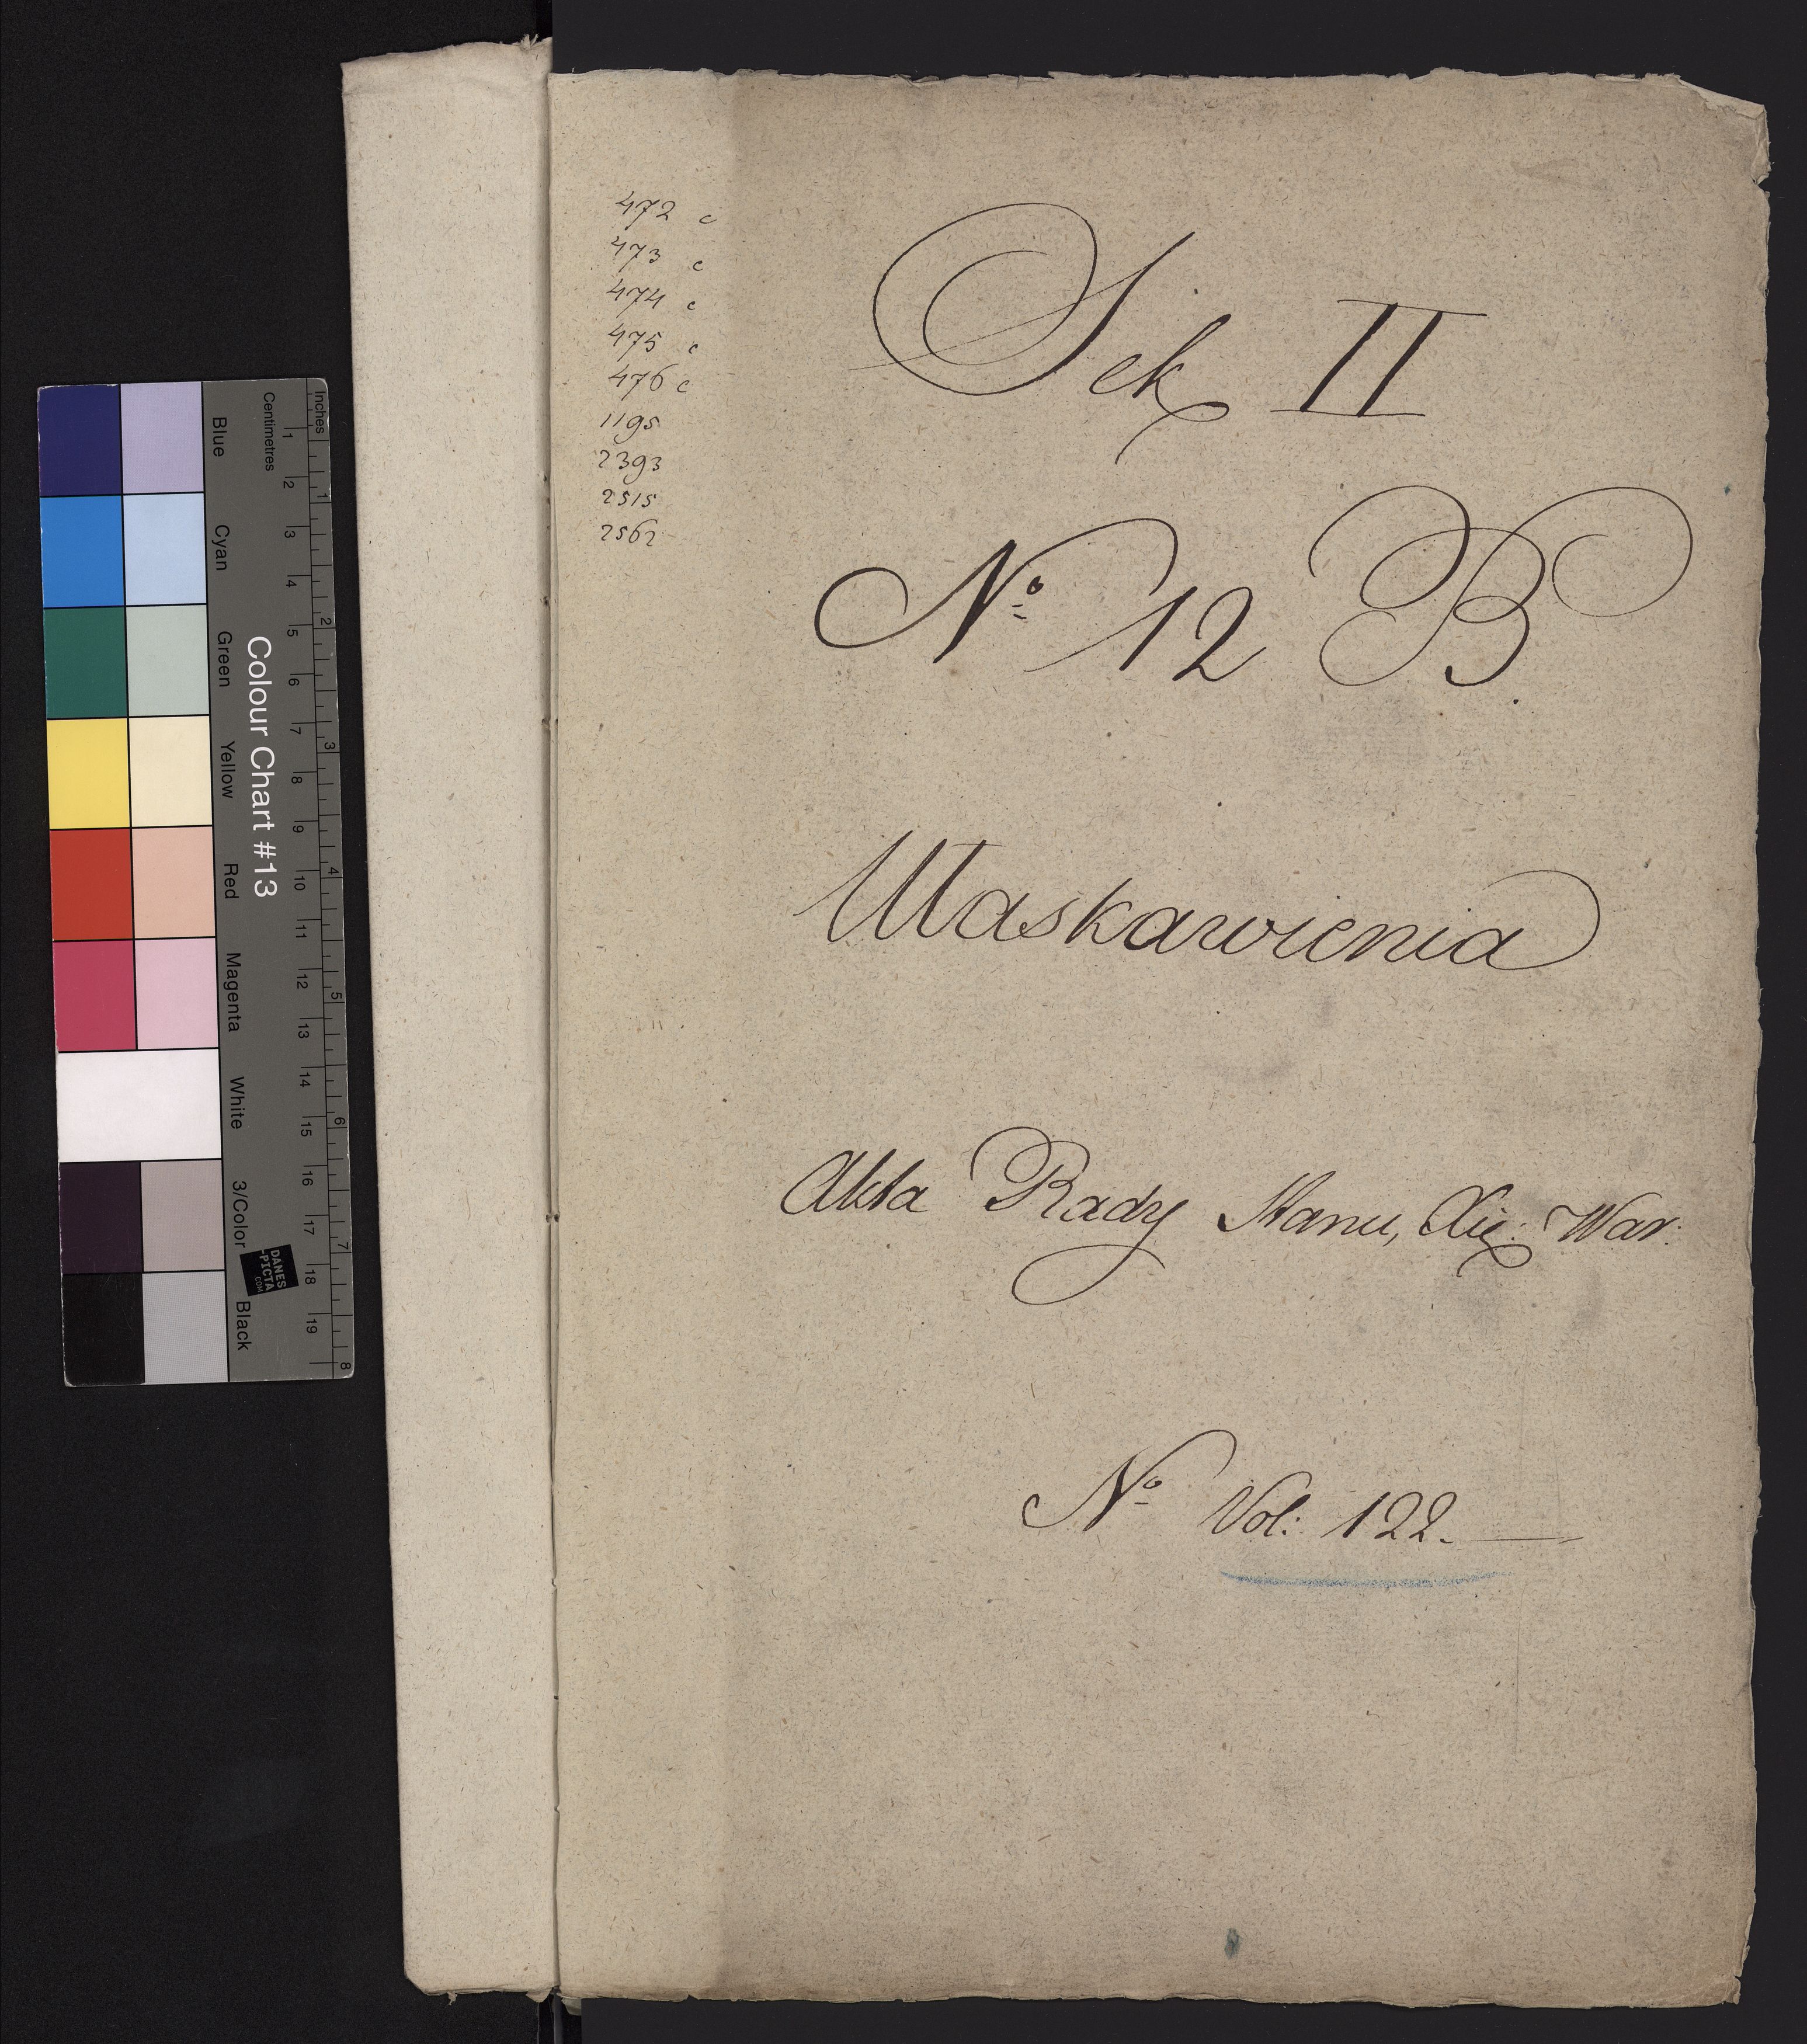 472 c
473 c
474 c
475 c
476 c
1195
2393
2515
2562
Sek II
No 12 B.
Ułaskawienia
Akta Rady Stanu, Xię: War:
No Vol: 122.
Colour Chart #13
Blue Cyan Green Yellow Red Magenta White 3/Color Black
Centimetres 1 2 3 4 5 6 7 8 9 10 11 12 13 14 15 16 17 18 19
Inches 1 2 3 4 5 6 7 8
DANES
-PICTA
.COM